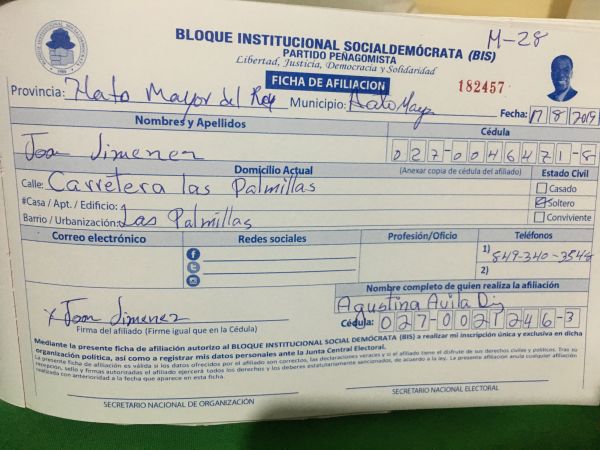 M-28
BLOQUE INSTITUCIONAL SOCIALDEMÓCRATA (BIS)
PARTIDO PEÑAGOMISTA
Libertad, Justicia, Democracia y Solidaridad
FICHA DE AFILIACION
182457
Provincia: Hato Mayor del Rey Municipio: Hato Mayor Fecha: 17 8 2019
Nombres y Apellidos Cédula
Joan Jimenez 027-0046471-8
(Anexar copia de cédula del afiliado)
Domicilio Actual Estado Civil
Calle: Carretera las Palmillas Casado
#Casa / Apt. / Edificio: Soltero
Barrio / Urbanización: Las Palmillas Conviviente
Correo electrónico Redes sociales Profesión/Oficio Teléfonos
1) 849-340-3548
2)
Nombre completo de quien realiza la afiliación
Agustina Avila
X Joan Jimenez
Cédula: 027-0021246-3
Firma del afiliado (Firme igual que en la Cédula)
Mediante la presente ficha de afiliación autorizo al BLOQUE INSTITUCIONAL SOCIAL DEMÓCRATA (BIS) a realizar mi inscripción única y exclusiva en dicha
organización política, así como a registrar mis datos personales ante la Junta Central Electoral.
La presente ficha de afiliación es válida si los datos ofrecidos por el afiliado son correctos, las declaraciones veraces y si el afiliado tiene el disfrute de sus derechos civiles y políticos. Tras su
recepción, sello y firmas autorizadas el afiliado ejercerá todos los derechos y los deberes estatutariamente sancionados, de acuerdo a la ley. La presente afiliación anula cualquier afiliación
realizada con anterioridad a la fecha que aparece en esta ficha.
SECRETARIO NACIONAL DE ORGANIZACIÓN SECRETARIO NACIONAL ELECTORAL